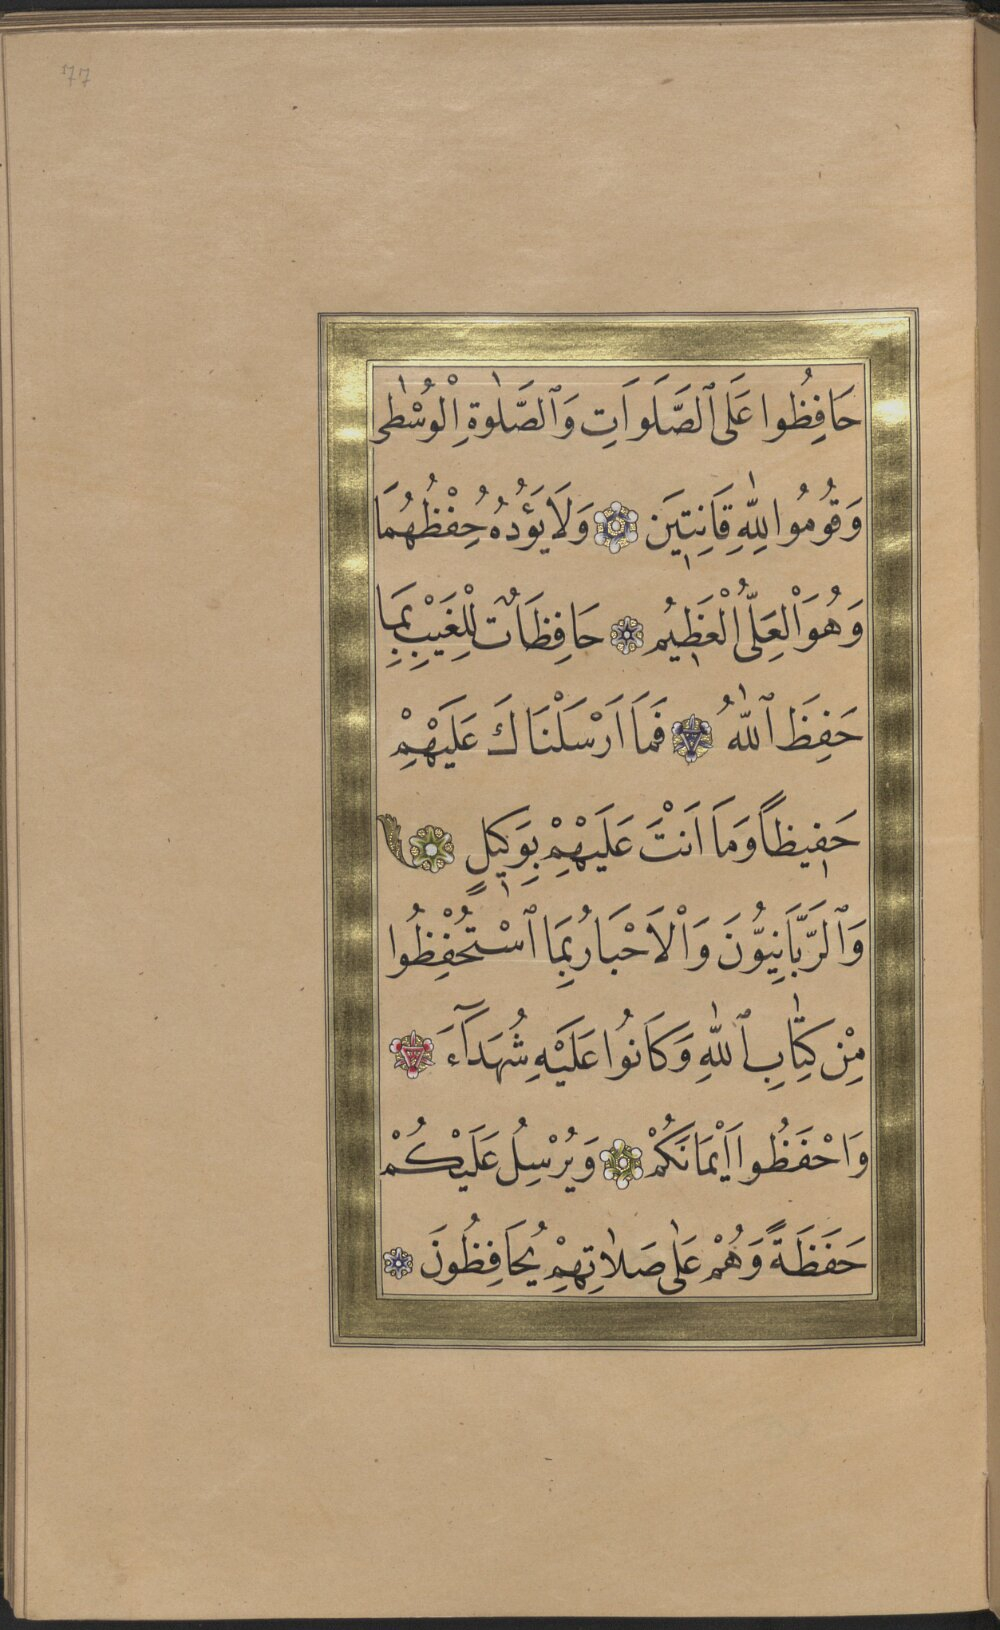 77
حَافِظُوا عَلَى ٱلصَّلَوَاتِ وَٱلصَّلٰوةِ الْوُسْطٰى
وَقُومُوا لِلّٰهِ قَانِتِينَ وَلَا يَؤُدُهُ حِفْظُهُمَا
وَهُوَ الْعَلِىُّ الْعَظِيمُ حَافِظَاتٌ لِلْغَيْبِ بِمَا
حَفِظَ ٱللّٰهُ فَمَا اَرْسَلْنَاكَ عَلَيْهِمْ
حَفِيظًا وَمَا اَنْتَ عَلَيْهِمْ بِوَكِيلٍ
وَٱلرَّبَّانِيُّونَ وَالْاَحْبَارُ بِمَا ٱسْتُحْفِظُوا
مِنْ كِتَابِ ٱللّٰهِ وَكَانُوا عَلَيْهِ شُهَدَآءَ
وَاحْفَظُوا اَيْمَانَكُمْ وَيُرْسِلُ عَلَيْكُمْ
حَفَظَةً وَهُمْ عَلٰى صَلَاتِهِمْ يُحَافِظُونَ